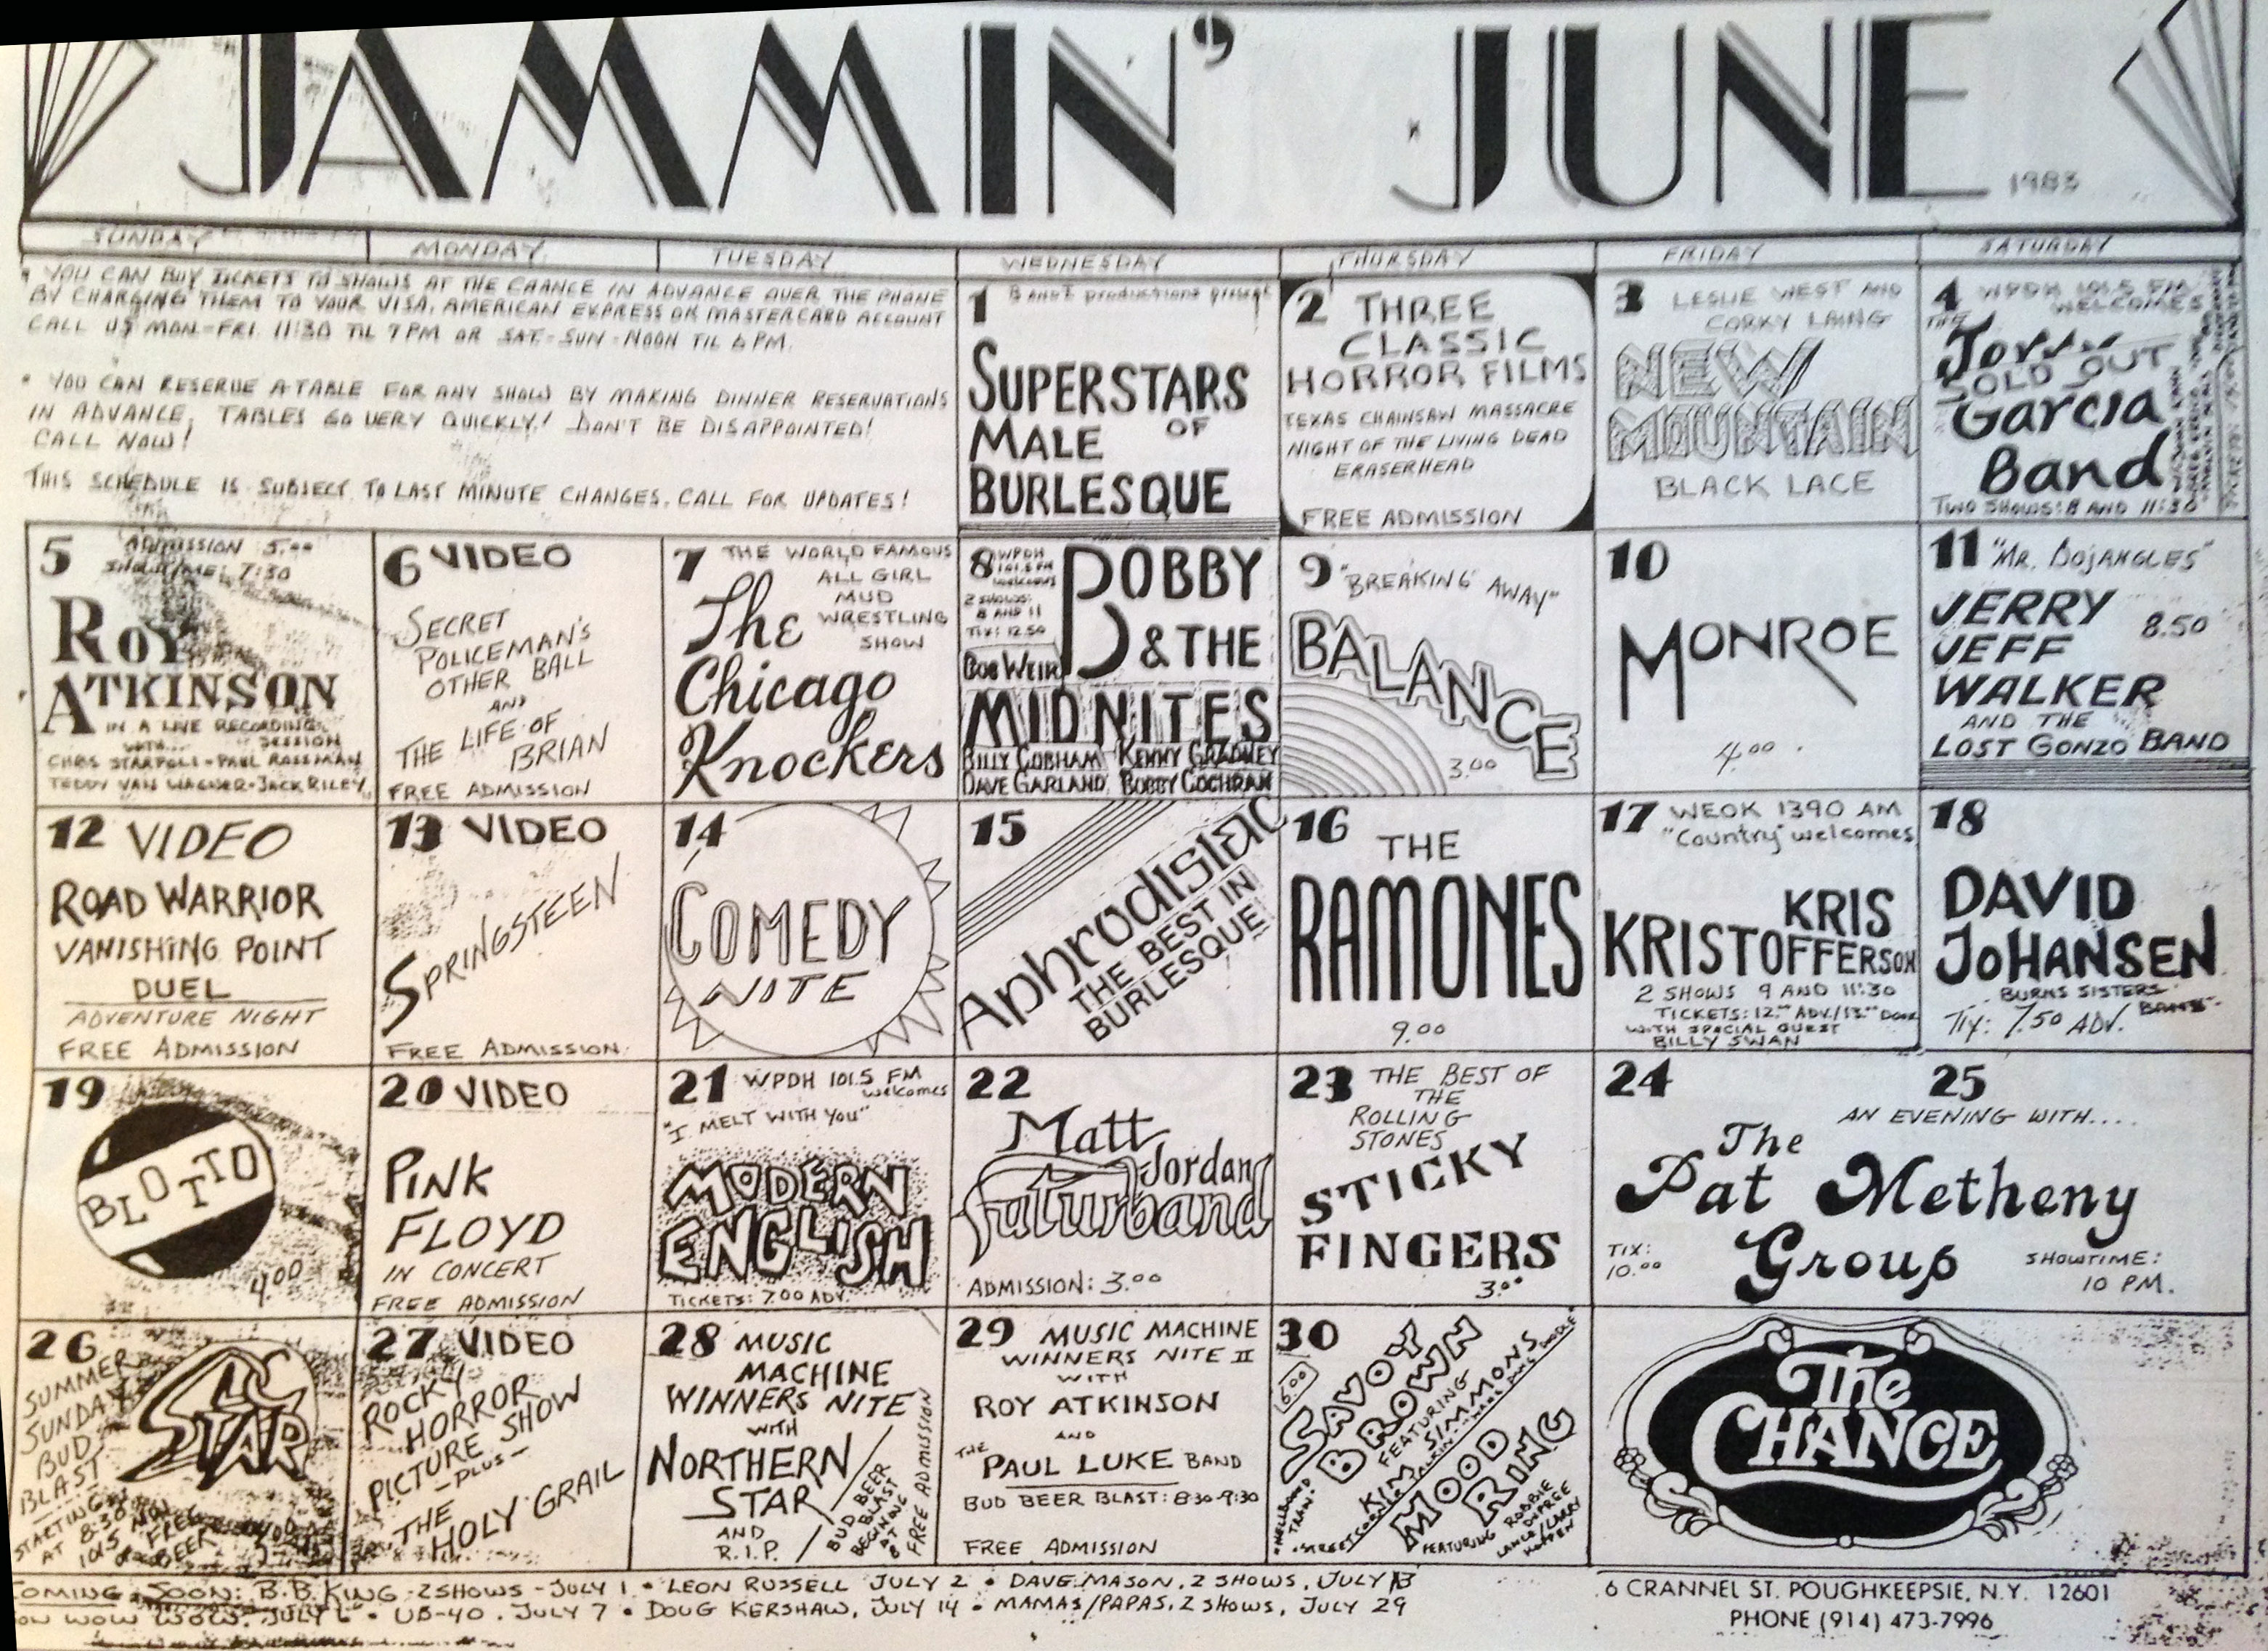 JAMMIN' JUNE 1983
SUNDAY MONDAY TUESDAY WEDNESDAY THURSDAY FRIDAY SATURDAY
• YOU CAN BUY TICKETS TO SHOWS AT THE CHANCE IN ADVANCE OVER THE PHONE
BY CHARGING THEM TO YOUR VISA, AMERICAN EXPRESS OR MASTERCARD ACCOUNT
CALL US MON-FRI. 11:30 TIL 7 PM OR SAT-SUN-NOON TIL 6 PM.
• YOU CAN RESERVE A TABLE FOR ANY SHOW BY MAKING DINNER RESERVATIONS
IN ADVANCE, TABLES GO VERY QUICKLY! DON'T BE DISAPPOINTED!
CALL NOW!
THIS SCHEDULE IS SUBJECT TO LAST MINUTE CHANGES. CALL FOR UPDATES!
1 productions present
SUPERSTARS
OF
MALE
BURLESQUE
2 THREE
CLASSIC
HORROR FILMS
TEXAS CHAINSAW MASSACRE
NIGHT OF THE LIVING DEAD
ERASERHEAD
FREE ADMISSION
3 LESLIE WEST AND
CORKY LAING
NEW
MOUNTAIN
BLACK LACE
4 WPDH 101.5 FM
WELCOMES
THE
Jerry
SOLD OUT
Garcia
Band
TWO SHOWS: 8 AND 11:30
5 ADMISSION 5.00
SHOWTIME: 7:30
ROY
ATKINSON
IN A LIVE RECORDING
SESSION
WITH...
CHRIS STARPOLI - PAUL ROSSMAN
TEDDY VAN WAGNER - JACK RILEY
6 VIDEO
SECRET
POLICEMAN'S
OTHER BALL
AND
THE LIFE OF
BRIAN
FREE ADMISSION
7 THE WORLD FAMOUS
ALL GIRL
MUD
WRESTLING
SHOW
The
Chicago
Knockers
8 WPDH
101.5 FM
welcomes
2 SHOWS:
8 AND 11
TIX: 12.50
BOBBY
& THE
BOB WEIR
MIDNITES
BILLY COBHAM KENNY GRADNEY
DAVE GARLAND BOBBY COCHRAN
9 "BREAKING AWAY"
BALANCE
3.00
10
MONROE
4.00
11 "MR. BOJANGLES"
JERRY
JEFF
8.50
WALKER
AND THE
LOST GONZO BAND
12 VIDEO
ROAD WARRIOR
VANISHING POINT
DUEL
ADVENTURE NIGHT
FREE ADMISSION
13 VIDEO
SPRINGSTEEN
FREE ADMISSION
14
COMEDY
NITE
15
Aphrodisiac
THE BEST IN
BURLESQUE
16 THE
RAMONES
9.00
17 WEOK 1390 AM
"Country" welcomes
KRIS
KRISTOFFERSON
2 SHOWS 9 AND 11:30
TICKETS: 12.00 ADV./13.00 DOOR
WITH SPECIAL GUEST
BILLY SWAN
18
DAVID
JOHANSEN
BURNS SISTERS
BAND
TIX: 7.50 ADV.
19
BLOTTO
4.00
20 VIDEO
PINK
FLOYD
IN CONCERT
FREE ADMISSION
21 WPDH 101.5 FM
welcomes
"I MELT WITH YOU"
MODERN
ENGLISH
TICKETS: 7.00 ADV.
22
Matt
Jordan
Futurband
ADMISSION: 3.00
23 THE BEST OF
THE
ROLLING
STONES
STICKY
FINGERS
3.00
24 25
AN EVENING WITH....
The
Pat Metheny
Group
TIX:
10.00
SHOWTIME:
10 PM.
26
SUMMER
SUNDAY
BUD
BLAST
STARTING
AT 8:30
FREE
BEER
STAR
27 VIDEO
ROCKY
HORROR
PICTURE SHOW
-PLUS-
THE
HOLY GRAIL
28 MUSIC
MACHINE
WINNERS NITE
WITH
NORTHERN
STAR
AND
R.I.P.
BUD BEER
BLAST
BEGINNING
AT 8
FREE ADMISSION
29 MUSIC MACHINE
WINNERS NITE II
WITH
ROY ATKINSON
AND
THE
PAUL LUKE BAND
BUD BEER BLAST: 8:30-9:30
FREE ADMISSION
30
6.00
SAVOY
BROWN
FEATURING
KIM SIMMONS
"HELLBOUND
TRAIN"
MOOD
RING
FEATURING ROBBIE
DUPREE
LARRY
HOPPEN
The
CHANCE
COMING SOON: B.B. KING-2 SHOWS-JULY 1 • LEON RUSSELL JULY 2 • DAVE MASON, 2 SHOWS, JULY 13
BOW WOW WOW, JULY 6 • UB-40, JULY 7 • DOUG KERSHAW, JULY 14 • MAMAS/PAPAS, 2 SHOWS, JULY 29
6 CRANNEL ST. POUGHKEEPSIE, N.Y. 12601
PHONE (914) 473-7996